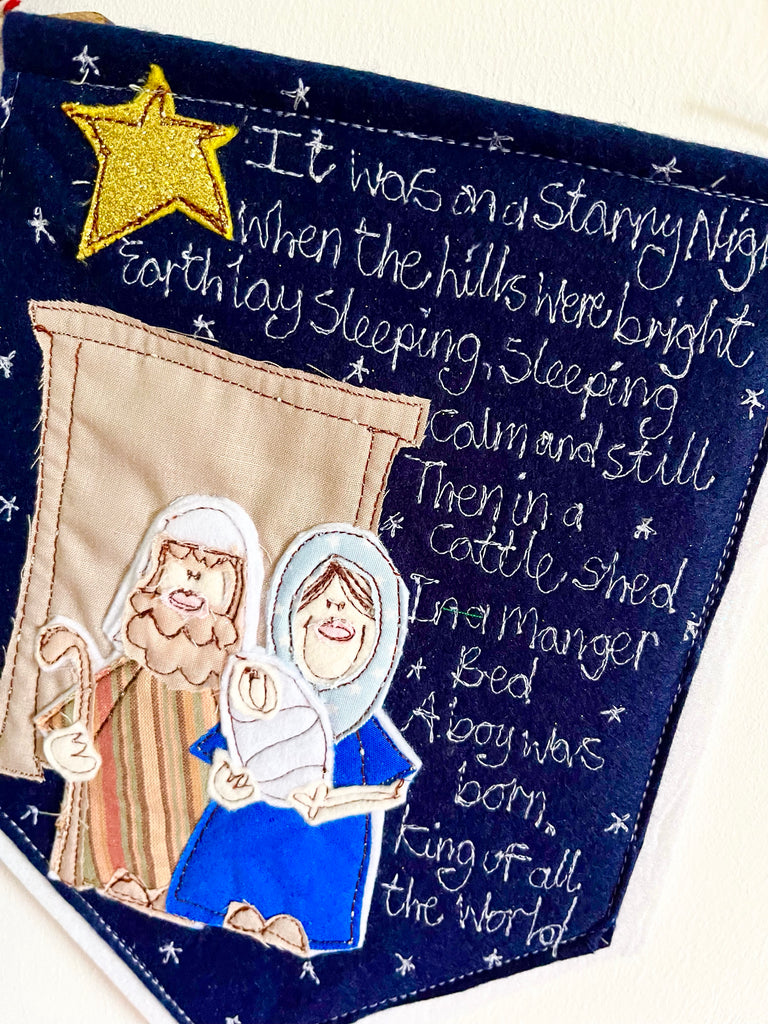 It was on a Starry Nigh
When the hills were bright
Earth lay Sleeping, Sleeping
Calm and still
Then in a
cattle shed
In a Manger
Bed
A boy was
born,
King of all
the World